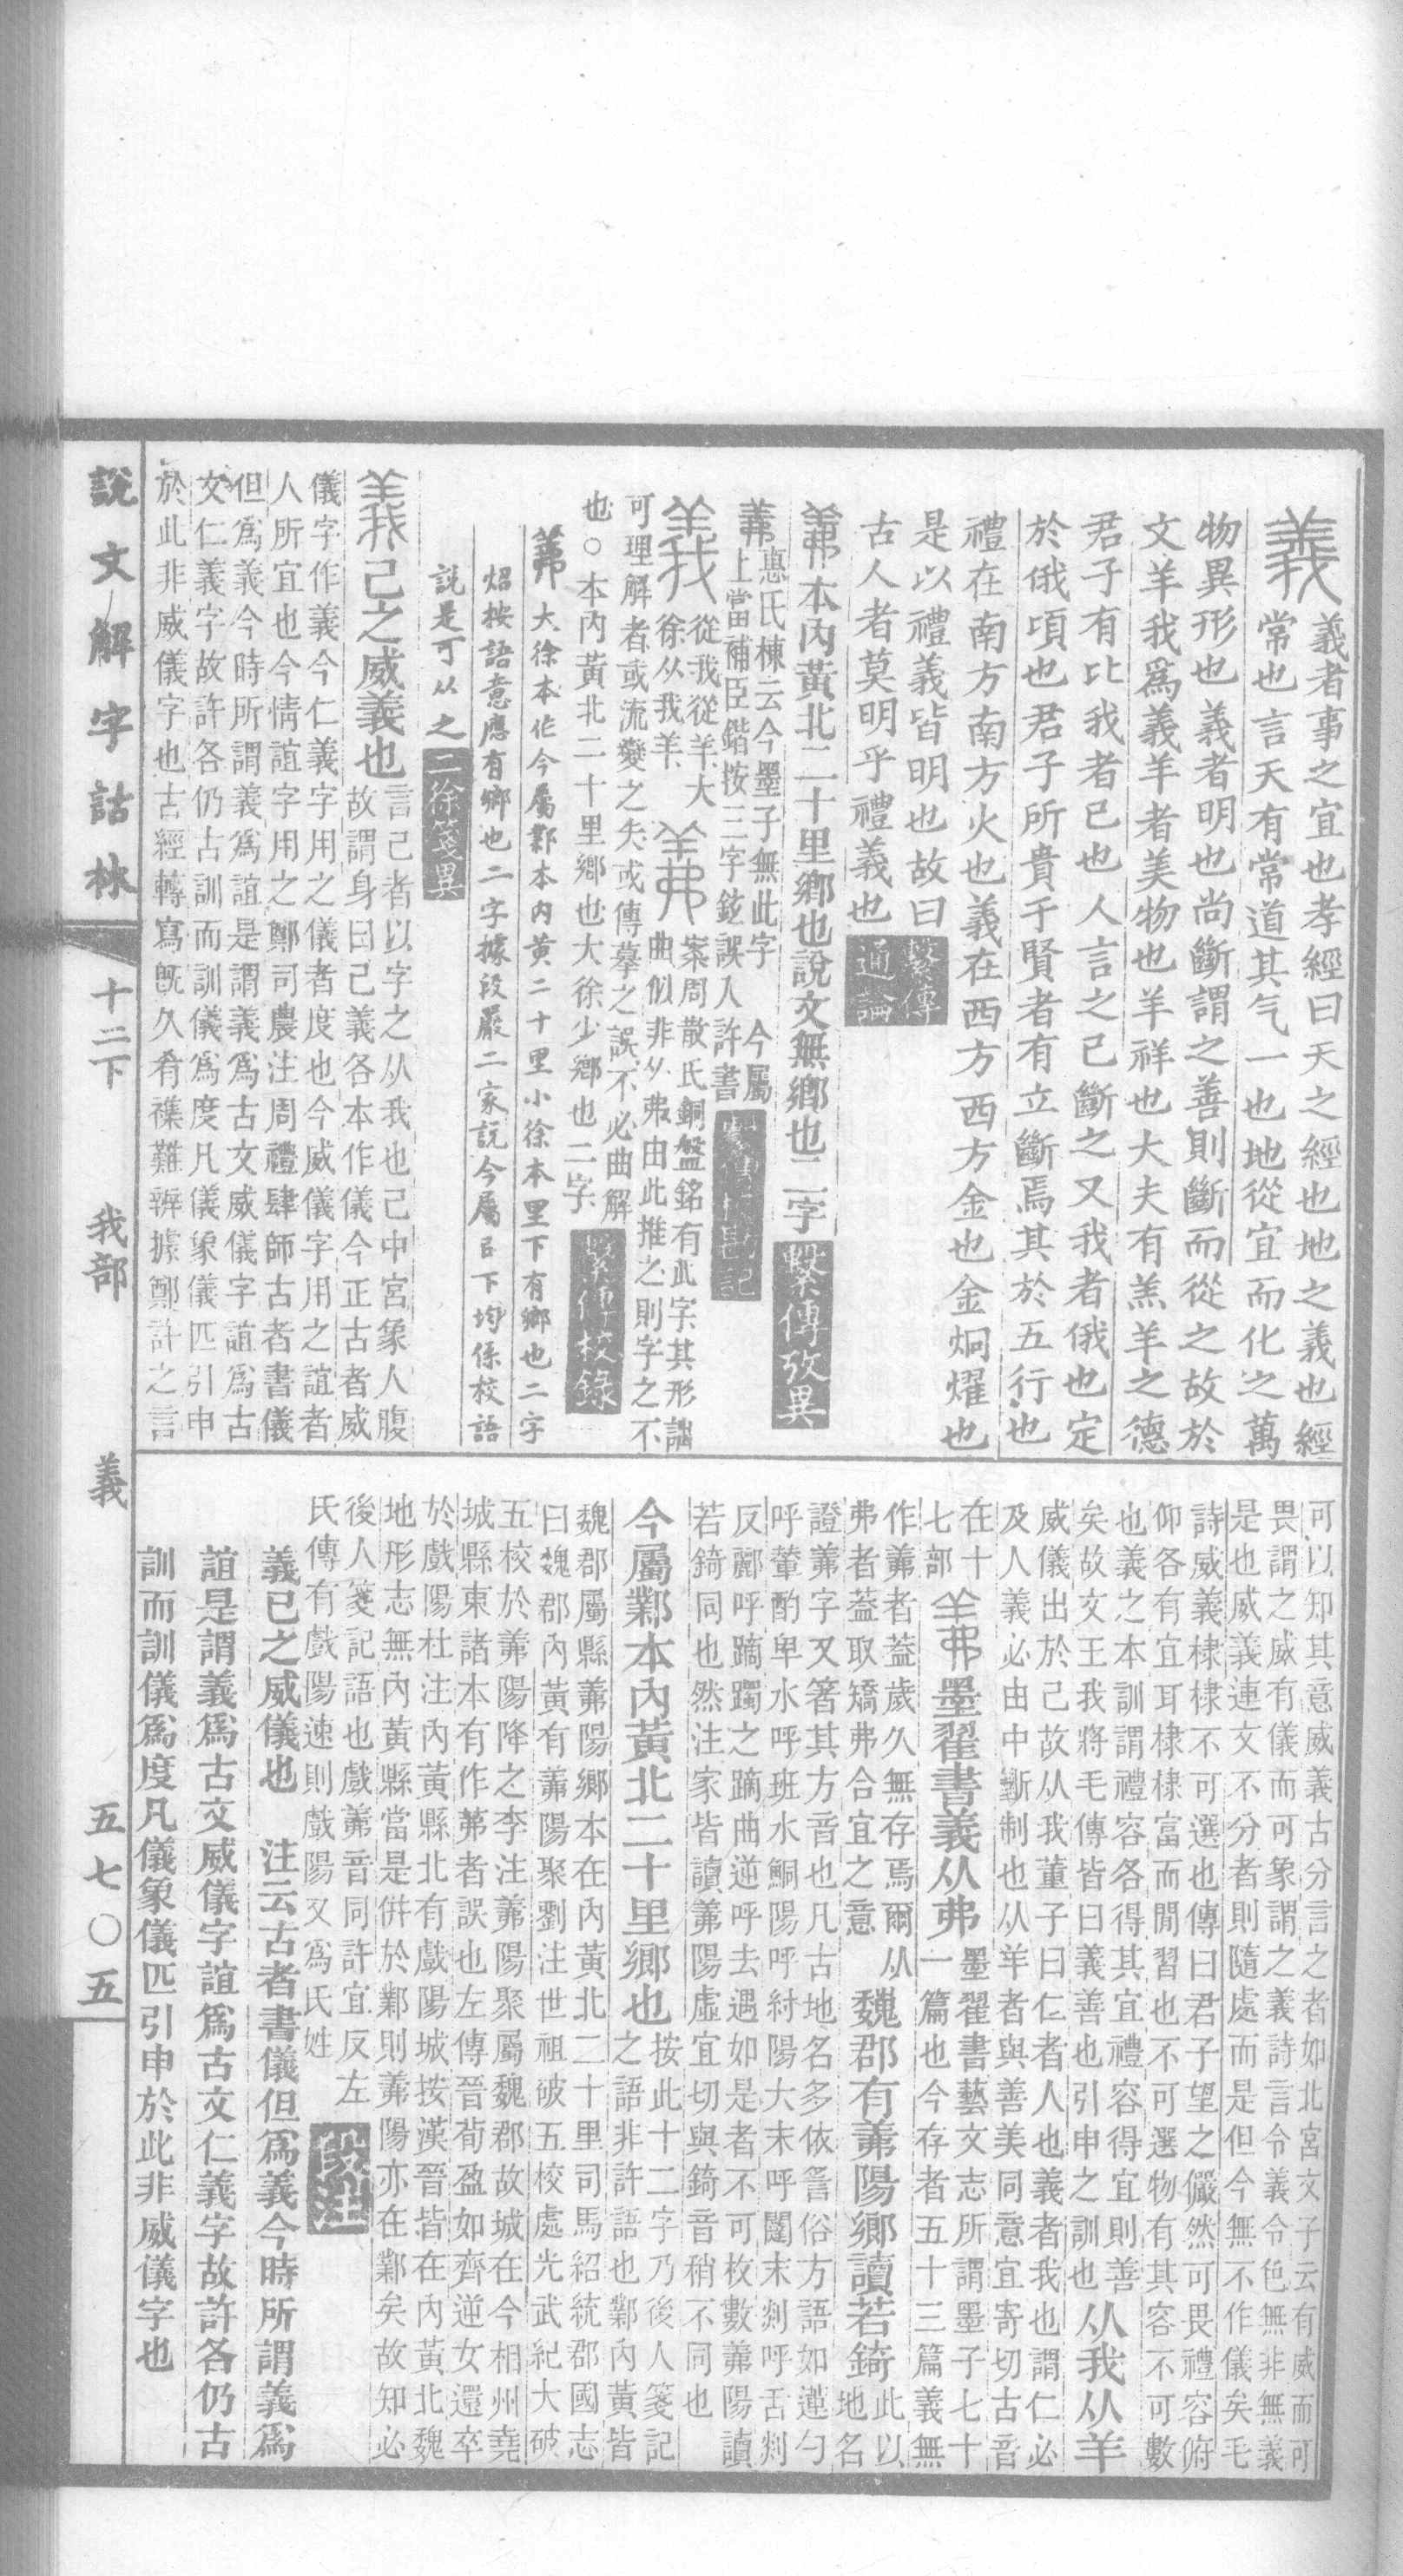 義 義者事之宜也孝經曰天之經也地之義也經
常也言天有常道其气一也地從宜而化之萬
物異形也義者明也尚斷謂之善則斷而從之故於
文羊我爲義羊者美物也羊祥也大夫有羔羊之德
君子有比我者已也人言之已斷之又我者俄也定
於俄頃也君子所貴于賢者有立斷焉其於五行也
禮在南方南方火也義在西方西方金也金炯燿也
是以禮義皆明也故曰
古人者莫明乎禮義也 繫傳通論
羛本內黃北二十里鄉也說文無鄉也二字 繫傳攷異
羛 惠氏棟云今墨子無此字 今屬
上當補臣鍇按三字鉉誤入 許書 繫傳校勘記
義 從我從羊大
徐从我羊
羛 案周散氏銅盤銘有此字其形詘
曲似非从弗由此推之則字之不
可理解者或流變之失或傳摹之誤不必曲解
也○本內黃北二十里鄉也大徐少鄉也二字 繫傳校錄
羛 大徐本作今屬鄴本內黃二十里小徐本里下有鄉也二字
炤按語意應有鄉也二字據段嚴二家說今屬已下均係校語
說是可从之 二徐箋異
義己之威義也 言己者以字之从我也己中宮象人腹
故謂身曰己義各本作儀今正古者威
儀字作義今仁義字用之儀者度也今威儀字用之誼者
人所宜也今情誼字用之鄭司農注周禮肆師古者書儀
但爲義今時所謂義爲誼是謂義爲古文威儀字誼爲古
文仁義字故許各仍古訓而訓儀爲度凡儀象儀匹引申
於此非威儀字也古經轉寫旣久肴襍難辨據鄭許之言
可以知其意威義古分言之者如北宮文子云有威而可
畏謂之威有儀而可象謂之義詩言令義令色無非無義
是也威義連文不分者則隨處而是但今無不作儀矣毛
詩威義棣棣不可選也傳曰君子望之儼然可畏禮容俯
仰各有宜耳棣棣富而閒習也不可選物有其容不可數
也義之本訓謂禮容各得其宜禮容得宜則善
矣故文王我將毛傳皆曰義善也引申之訓也 从我从羊
威儀出於己故从我董子曰仁者人也義者我也謂仁必
及人義必由中斷制也从羊者與善美同意宜寄切古音
在十
七部 羛墨翟書義从弗 墨翟書藝文志所謂墨子七十
一篇也今存者五十三篇義無
作羛者葢歲久無存焉爾从
弗者葢取矯弗合宜之意 魏郡有羛陽鄉讀若錡 此以
地名
證羛字又箸其方音也凡古地名多依方俗方語如蓮勺
呼輦酌卑水呼班水鮦陽呼紂陽大末呼闥末剡呼舌剡
反酈呼蹢躅之蹢曲逆呼去遇如是者不可枚數羛陽讀
若錡同也然注家皆讀羛陽虛宜切與錡音稍不同也
今屬鄴本內黃北二十里鄉也 按此十二字乃後人箋記
之語非許語也鄴內黃皆
魏郡屬縣羛陽鄉本在內黃北二十里司馬紹統郡國志
曰魏郡內黃有羛陽聚劉注世祖破五校處光武紀大破
五校於羛陽降之李注羛陽聚屬魏郡故城在今相州堯
城縣東諸本有作茀者誤也左傳晉荀盈如齊逆女還卒
於戲陽杜注內黃縣北有戲陽城按漢晉皆在內黃北魏
地形志無內黃縣當是併於鄴則羛陽亦在鄴矣故知必
後人箋記語也戲羛音同許宜反左
氏傳有戲陽速則戲陽又爲氏姓 段注
義已之威儀也 注云古者書儀但爲義今時所謂義爲
誼是謂義爲古文威儀字誼爲古文仁義字故許各仍古
訓而訓儀爲度凡儀象儀匹引申於此非威儀字也
說文解字詁林 十二下 我部 義 五七〇五